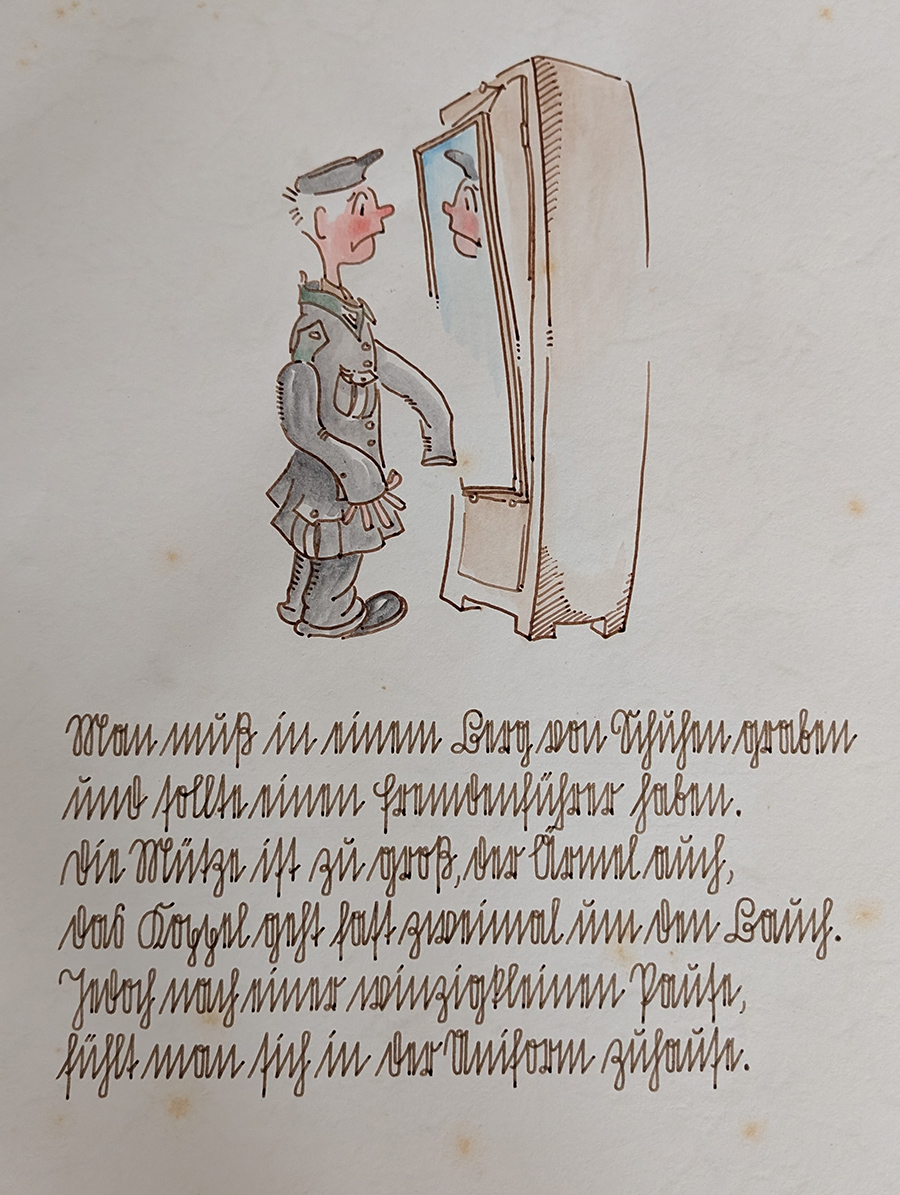 Man muß in einem Berg von Schuhen graben
und sollte einen Fremdenführer haben.
Die Mütze ist zu groß, der Ärmel auch,
das Koppel geht fast zweimal um den Bauch.
Jedoch nach einer winzigkleinen Pause,
fühlt man sich in der Uniform zuhause.